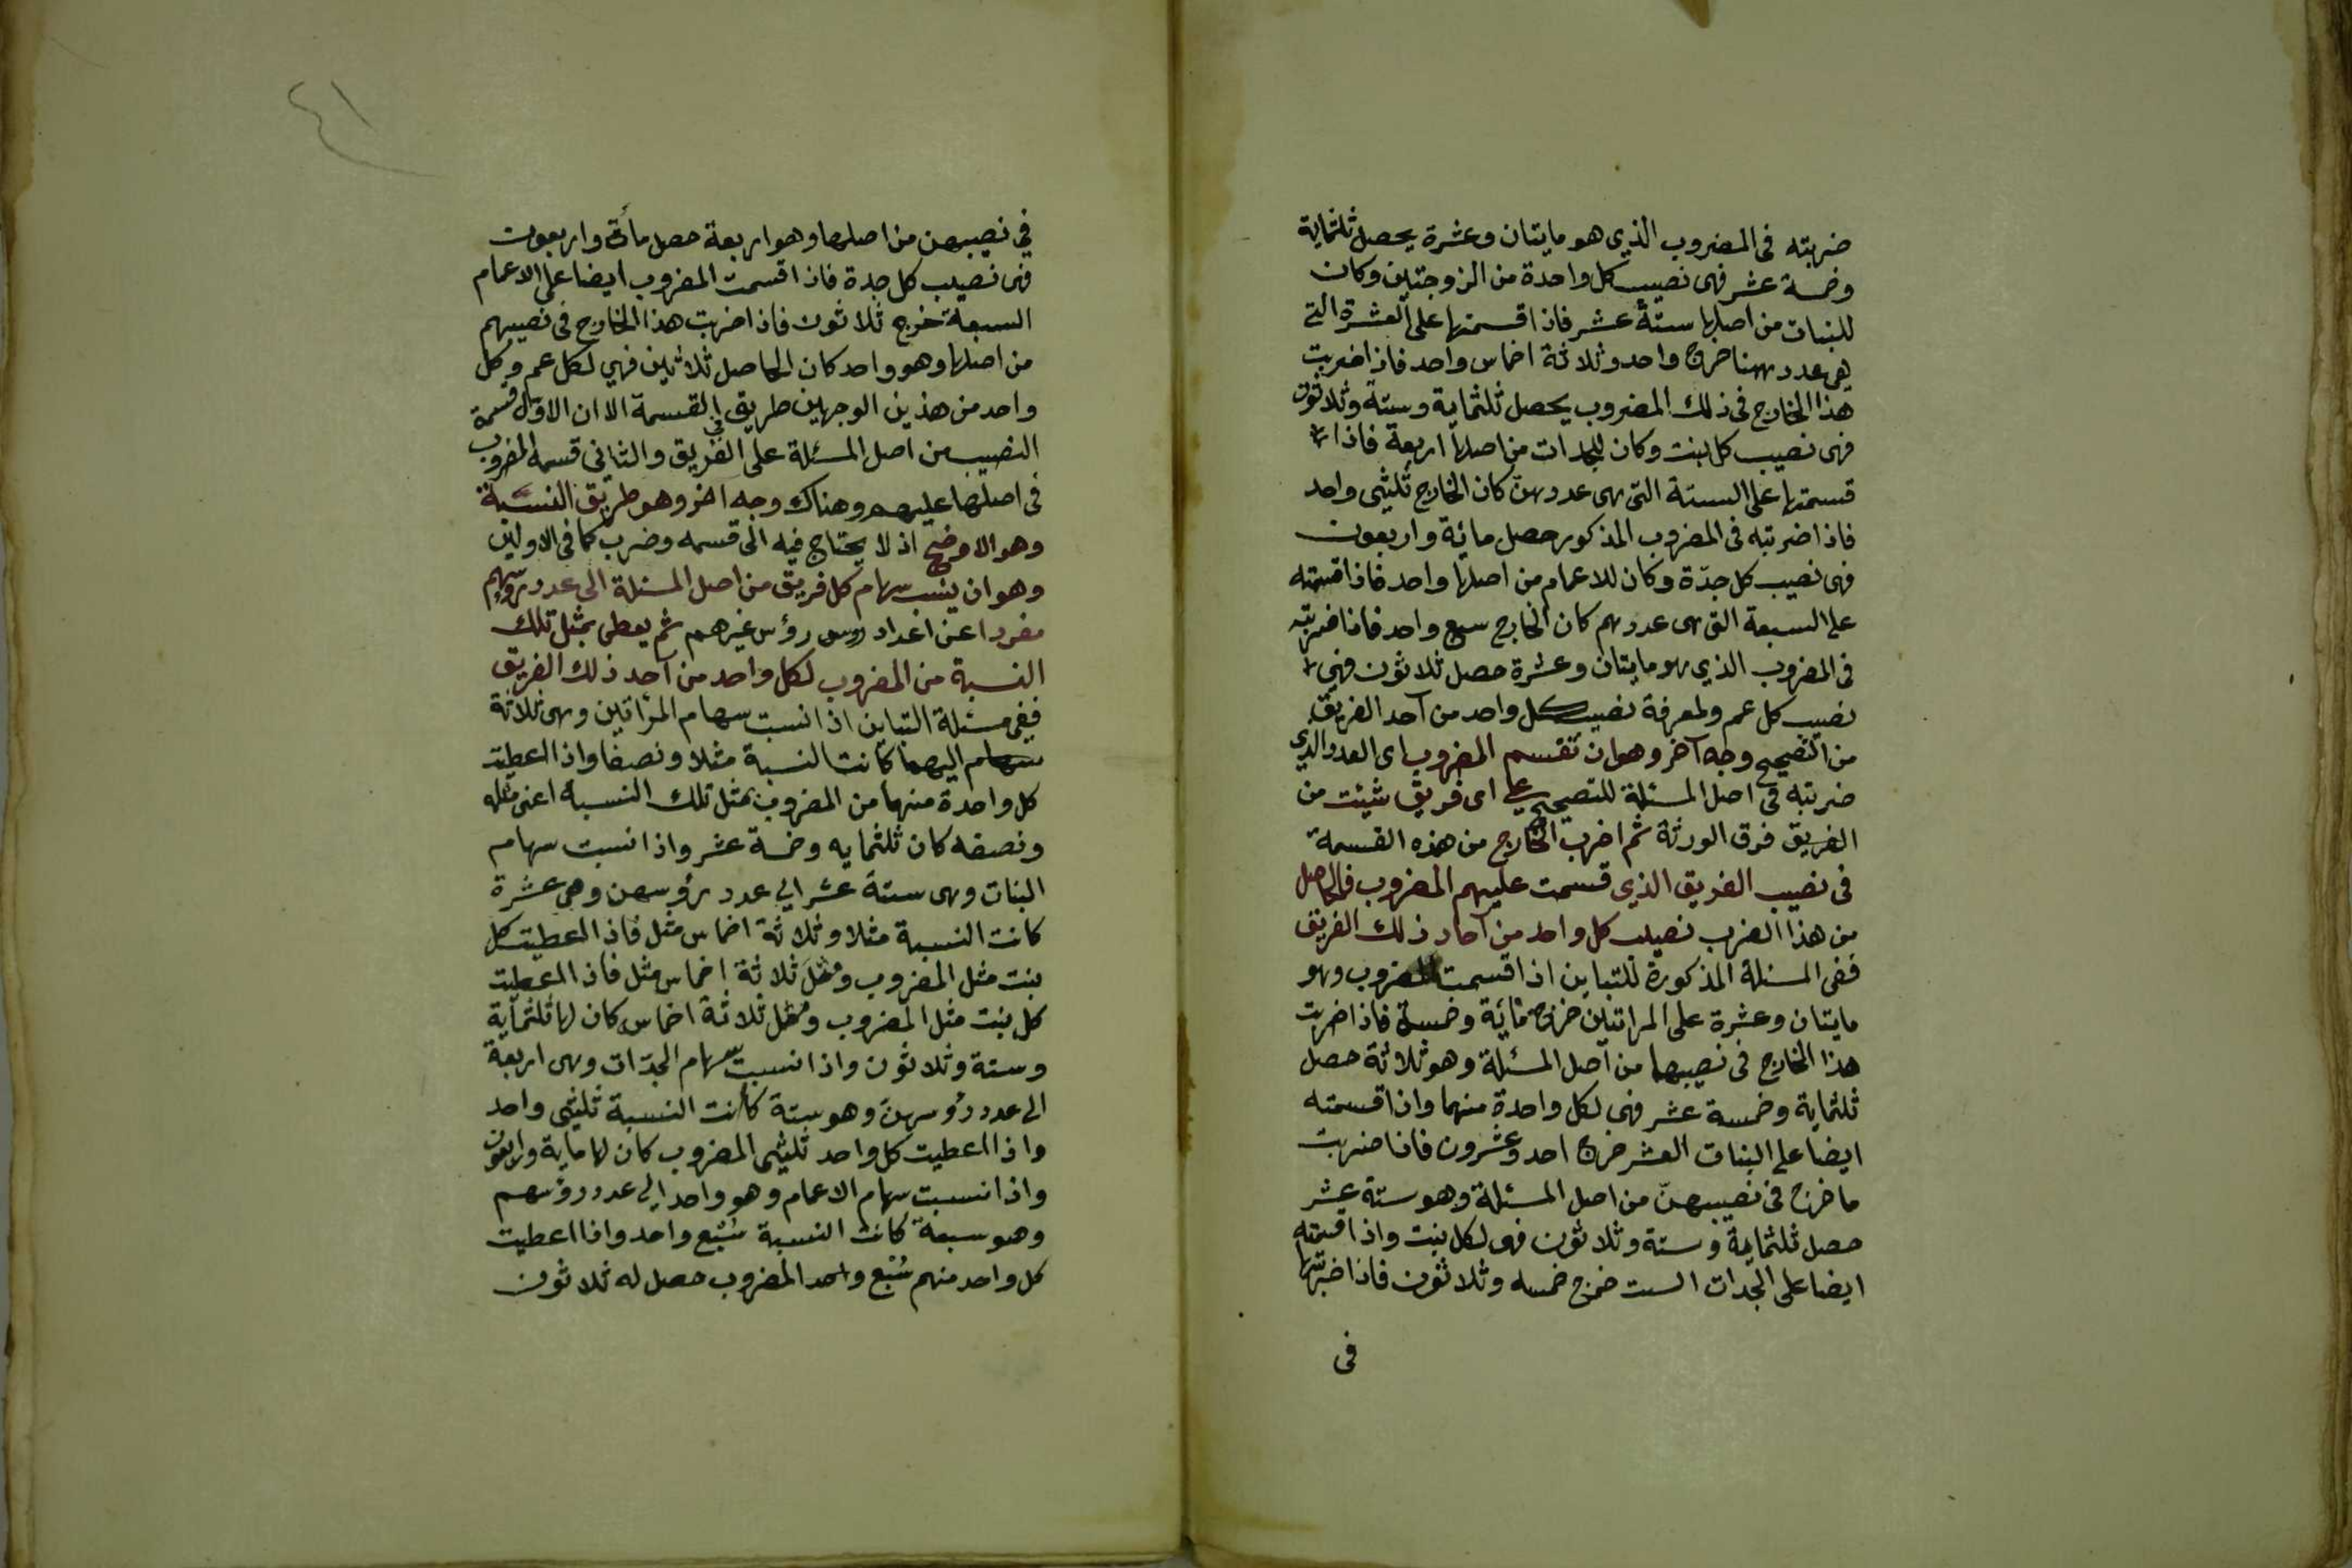 ضربته فى المضروب الذي هو مايتان وعشرة يحصل ثلثماية
وخمسة عشر فهى نصيب كل واحدة من الزوجتين وكان
للبنات من اصلها ستة عشر فاذا قسمتها على العشرة التى
هى عددهن خرج واحد وثلاثة اخماس واحد فاذا ضربت
هذا الخارج فى ذلك المضروب يحصل ثلثماية وستة وثلاثون
فهى نصيب كل بنت وكان للجدات من اصلها اربعة فاذا
قسمتها على الستة التى هى عددهن كان الخارج ثلثى واحد
فاذا ضربته فى المضروب المذكور حصل مائة واربعون
فهى نصيب كل جدّة وكان للاعمام من اصلها واحد فاذا قسمته
على السبعة التى هى عددهم كان الخارج سبع واحد فاذا ضربته
فى المضروب الذي هو مايتان وعشرة حصل ثلاثون فهى
نصيب كل عم ولمعرفة نصيب كل واحد من آحد الفريق
من التصحيح وجه آخر وهو ان تقسم المضروب اى العدد الذي
ضربته فى اصل المسئلة للتصحيح على اى فريق شيئت من
الفريق فرق الورثة ثم اضرب الخارج من هذه القسمة
فى نصيب الفريق الذي قسمت عليهم المضروب فالحاصل
من هذا الضرب نصيب كل واحد من آحاد ذلك الفريق
ففى المسئلة المذكورة للتباين اذا قسمت المضروب وهو
مايتان وعشرة على المراتين خرج مائة وخمسة فاذا ضربت
هذا الخارج فى نصيبهما من اصل المسئلة وهو ثلاثة حصل
ثلثماية وخمسة عشر فهى لكل واحدة منهما واذا قسمته
ايضا على البنات العشر خرج احد وعشرون فاذا ضربت
ما خرج فى نصيبهنّ من اصل المسئلة وهو ستة عشر
حصل ثلثماية وستة وثلاثون فهى لكل بنت واذا قسمته
ايضا على الجدات الست خرج خمسه وثلاثون فاذا ضربتها
فى
٤١
في نصيبهن من اصلها وهو اربعة حصل مأئة واربعون
فهى نصيب كل جدة فاذا قسمت المضروب ايضا على الاعمام
السبعة خرج ثلاثون فاذا ضربت هذا الخارج فى نصيبهم
من اصلها وهو واحد كان الحاصل ثلاثين فهي لكل عم وكل
واحد من هذين الوجهين طريق القسمة الا ان الاول قسمة
النصيب من اصل المسئلة على الفريق والثانى قسمه المضروب
فى اصلها عليهم وهناك وجه اخر وهو طريق النسبة
وهو الاوضح اذ لا يحتاج فيه الى قسمه وضرب كما فى الاولين
وهو ان ينسب سهام كل فريق من اصل المسئلة الى عدد رؤسهم
مفردا عن اعداد روس رؤس غيرهم ثم يعطى بمثل تلك
النسبة من المضروب لكل واحد من آحد ذلك الفريق
ففى مسئلة التباين اذا نسبت سهام المراتين وهى ثلاثة
سهام اليهما كانت النسبة مثلا ونصفا واذا اعطيت
كل واحدة منهما من المضروب بمثل تلك النسبة اعنى مثله
ونصفه كان ثلثمايه وخمسة عشر واذا نسبت سهام
البنات وهى ستة عشر الي عدد رؤسهن وهى عشرة
كانت النسبة مثلا وثلاثة اخماس مثل فاذا اعطيت كل
بنت مثل المضروب ومثل ثلاثة اخماس مثل فاذا اعطيت
كل بنت مثل المضروب ومثل ثلاثة اخماس كان لها ثلثمآية
وستة وثلاثون واذا نسبت سهام الجدّات وهى اربعة
الى عدد رؤسهنّ وهو ستة كانت النسبة ثلثى واحد
واذا اعطيت كل واحد ثلثى المضروب كان لها ماية واربعون
واذا نسبت سهام الاعمام وهو واحد الي عدد رؤسهم
وهو سبعة كانت النسبة سُبْع واحد واذا اعطيت
كل واحد منهم سُبْع واحد المضروب حصل له ثلاثون